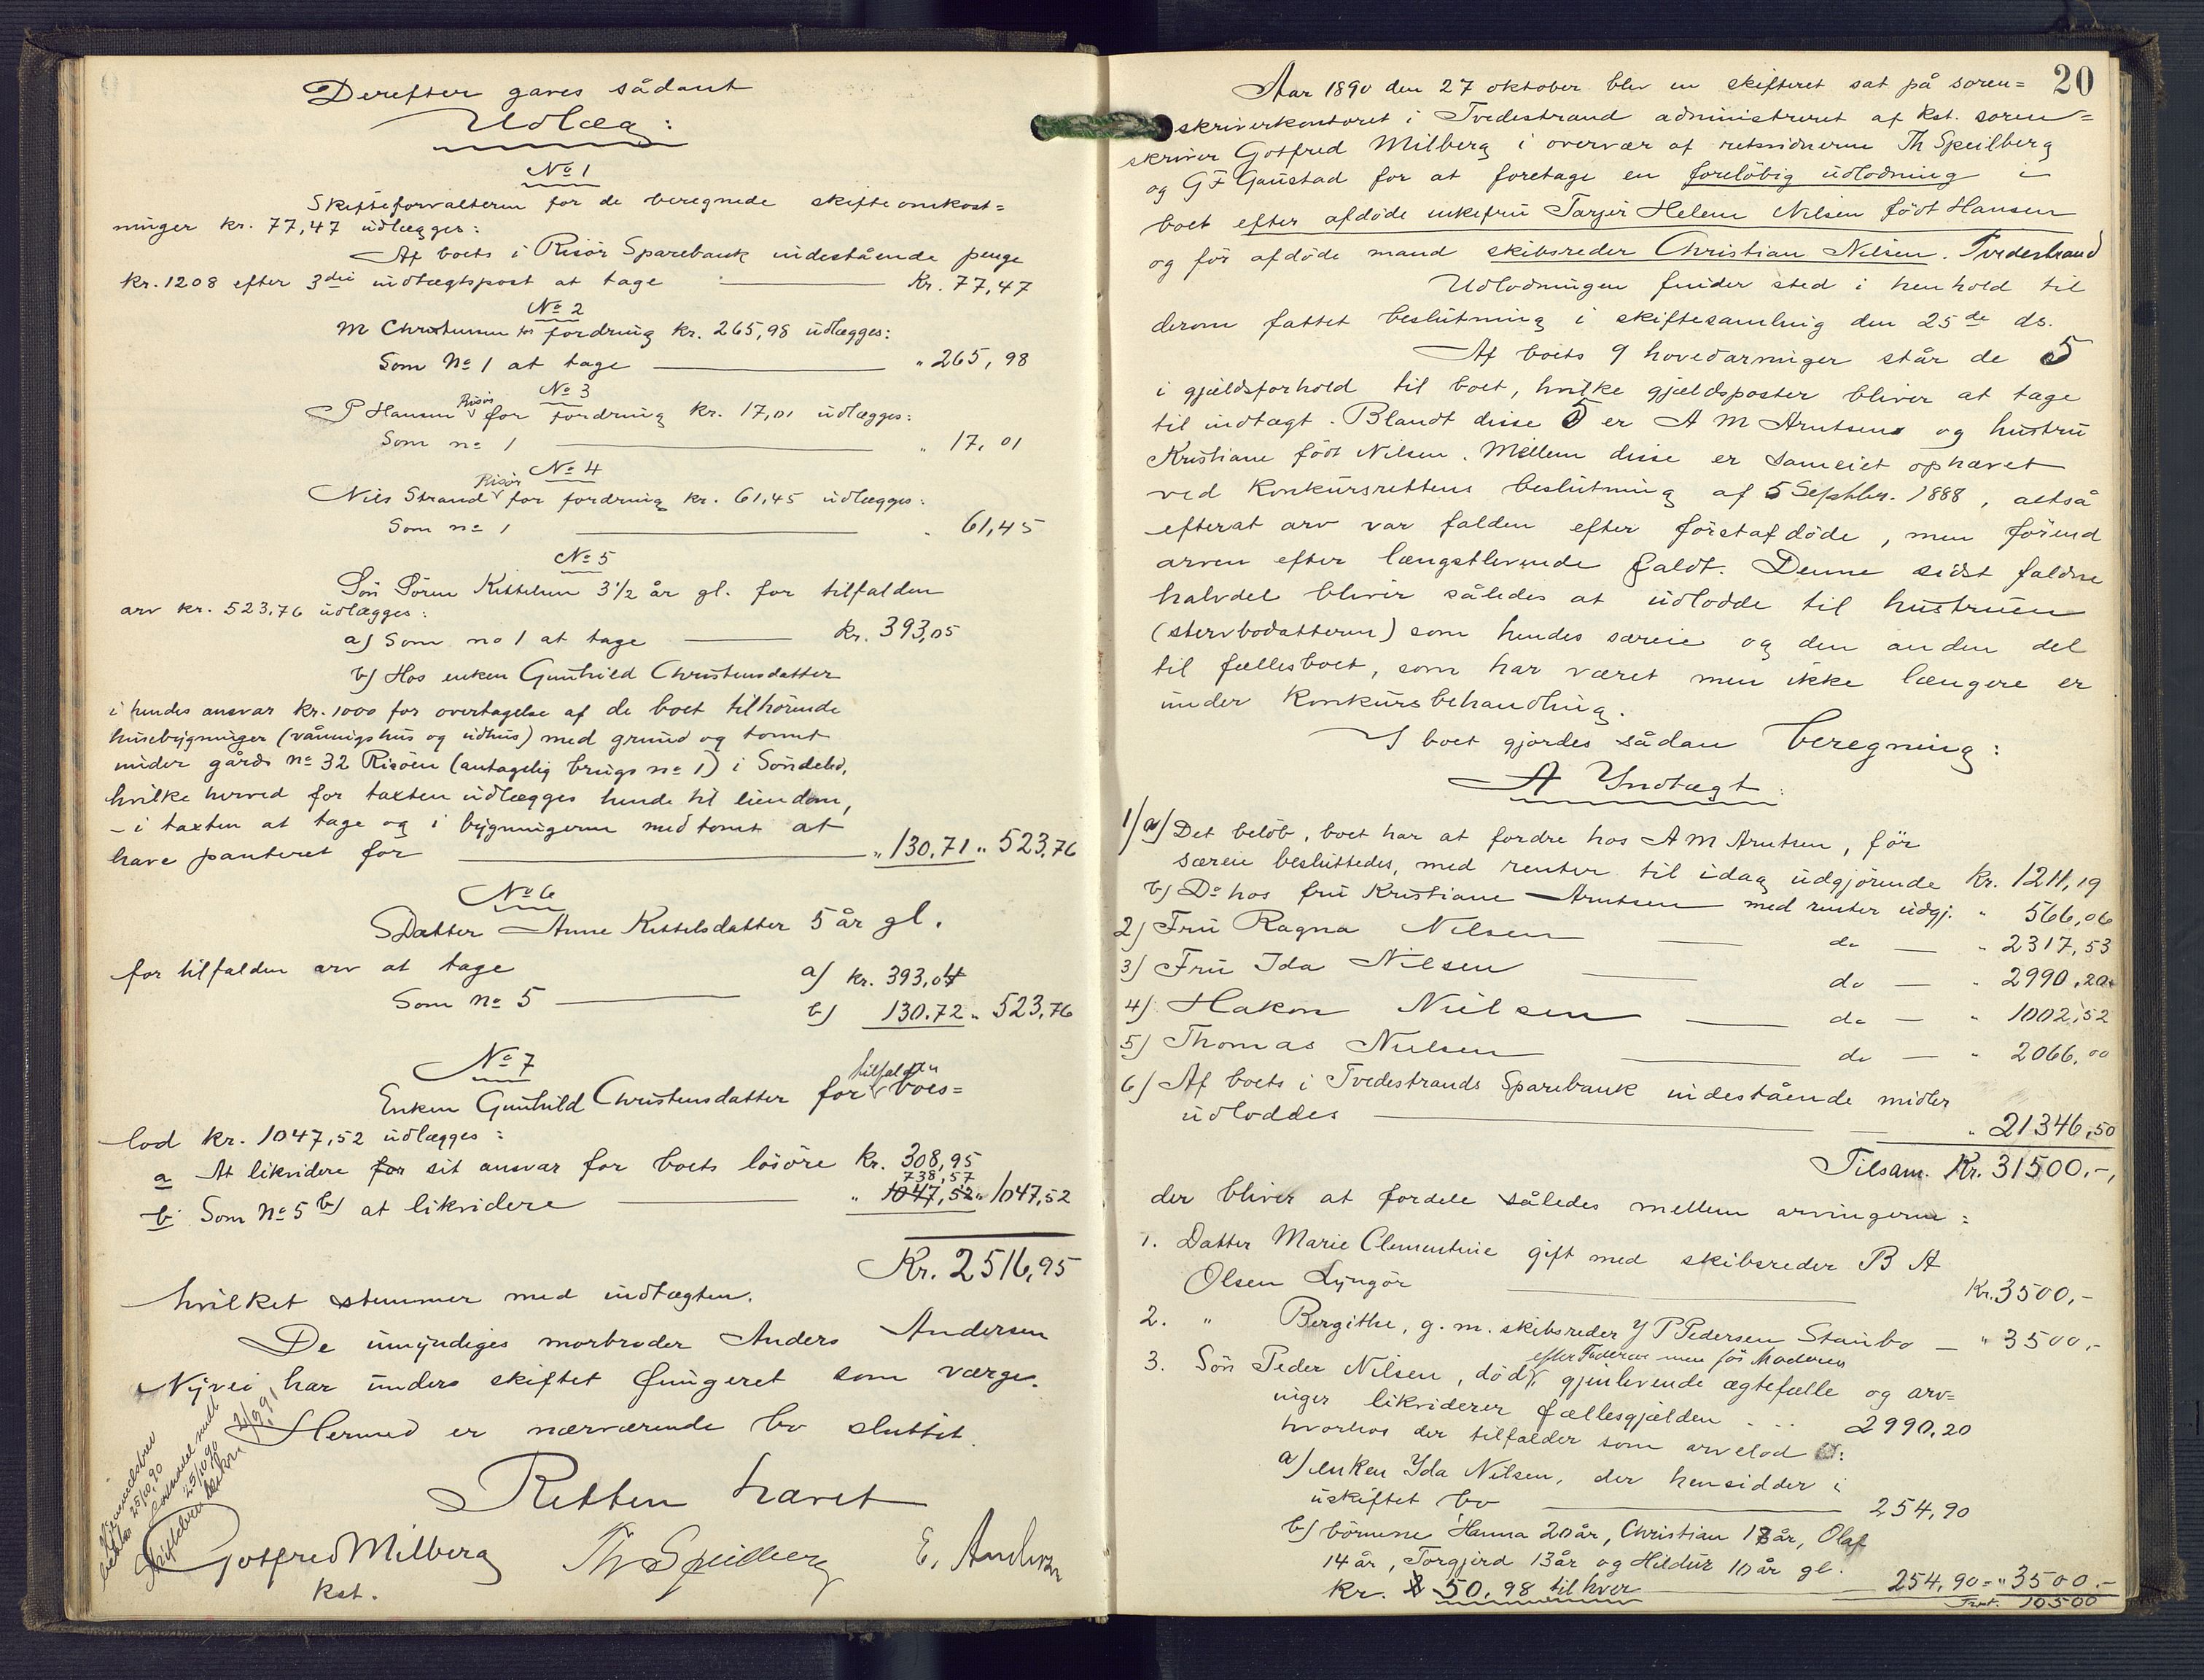 Derefter gaves sådant
Udlæg:
No 1
Skifteforvalteren for de beregnede skifteomkost=
ninger kr. 77,47 udlægges:
Af boets i Risör Sparebank indestående penge
kr. 1208 efter 3die indtægtspost at tage Kr. 77,47
No 2
M Christensen for fordring kr. 265,98 udlægges:
Som No 1 at tage " 265,98
No 3
P Hansen Risör for fordring kr. 17,01 udlægges:
Som no 1 " 17,01
No 4
Nils Strand Risör for fordring kr. 61,45 udlægges:
Som no 1 " 61,45
No 5
Sön Sören Kittelsen 3 1/2 år gl. for tilfalden
arv kr. 523,76 udlægges:
a) Som no 1 at tage Kr. 393,05
b) Hos enken Gunhild Christensdatter
i hendes ansvar kr. 1000 for overtagelse af de boet tilhörende
husebygninger (våningshus og udhus) med grund og tomt
under gårds no 32 Risöen (antagelig brugs no 1) i Söndeled,
hvilke herved for taxten udlægges hende til eiendom,
– i taxten at tage og i bygningerne med tomt at
have panteret for " 130,71 " 523,76
No 6
Datter Anne Kittelsdatter 5 år gl.
for tilfalden arv at tage a) kr. 393,04
Som No 5 b) 130.72 " 523,76
No 7
Enken Gunhild Christensdatter for tilfalden boes=
lod kr. 1047,52 udlægges:
a At likvidere for sit ansvar for boets lösöre kr. 308,95
738,57
b. Som No 5 b) at likvidere " 1047,52 " 1047,52
Kr. 2516,95
hvilket stemmer med indtægten.
De umyndiges morbroder Anders Andersen
Nyvei har under skiftet fungeret som værge.
Hermed er nærværende bo sluttet.
Retten hævet
Gotfred Milberg Th Speilberg E. Andersen
Kst.
25/10 90
25/10 90
20
Aar 1890 den 27 oktober blev en skifteret sat på soren=
skriverkontoret i Tvedestrand administreret af kst. soren=
skriver Gotfred Milberg i overvær af retsvidnerne Th Speilberg
og G F Gaustad for at foretage en foreløbig udlodning i
boet efter afdöde enkefru Tarjer Helene Nilsen födt Hansen
og för afdöde mand skibsreder Christian Nilsen. Tvedestrand
Udlodningen finder sted i henhold til
derom fattet beslutning i skiftesamling den 25de ds.
Af boets 9 hovedarvinger står de 5
i gjældsforhold til boet, hvilke gjældsposter bliver at tage
til indtægt. Blandt disse 5 er A M Arntsen og hustru
Kristiane födt Nilsen. Mellem disse er sameiet ophævet
ved konkursrettens beslutning af 5 Septbr. 1888, altså
efterat arv var falden efter förstafdöde, men förend
arven efter længstlevende faldt. Denne sidst faldne
halvdel bliver således at udlodde til hustruen
(stervbodatteren) som hendes særeie og den anden del
til fællesboet, som har været men ikke længere er
under konkursbehandling.
I boet gjordes sådan beregning:
A Indtægt:
1/ a) Det belöb, boet har at fordre hos A M Arntsen, för
særeie besluttedes, med renter til idag udgjörende Kr. 1211,19
b) Do hos fru Kristiane Arntsen med renter udgj. " 566,06
2) Fru Ragna Nilsen do " 2317,53
3) Fru Ida Nilsen do " 2990,20
4) Hakon Nielsen do " 1002,52
5) Thomas Nielsen do " 2066,00
6) Af boets i Tvedestrands Sparebank indestående midler
udloddes " 21346,50
Tilsam. Kr. 31500.-,
der bliver at fordele således mellem arvingerne:
1. Datter Marie Clementine gift med skibsreder B A
Olsen Lyngör Kr. 3500,-
2. " Bergithe, g. m. skibsreder J P Pedersen Staubo " 3500,-
efter Faderen men för Moderen
3. Sön Peder Nilsen, död, gjenlevende ægtefælle og arv=
inger likviderer fællesgjælden 2990,20
hvorhos der tilfalder som arvelod
a) enken Ida Nilsen, der hensidder i
uskiftet bo 254,90
b) börnene Hanna 20 år, Christian 18 år, Olaf
14 år, Torgjerd 13 år og Hildur 10 år gl.
kr. 50,98 til hver 254,90 = " 3500.-
Trpt. 10500